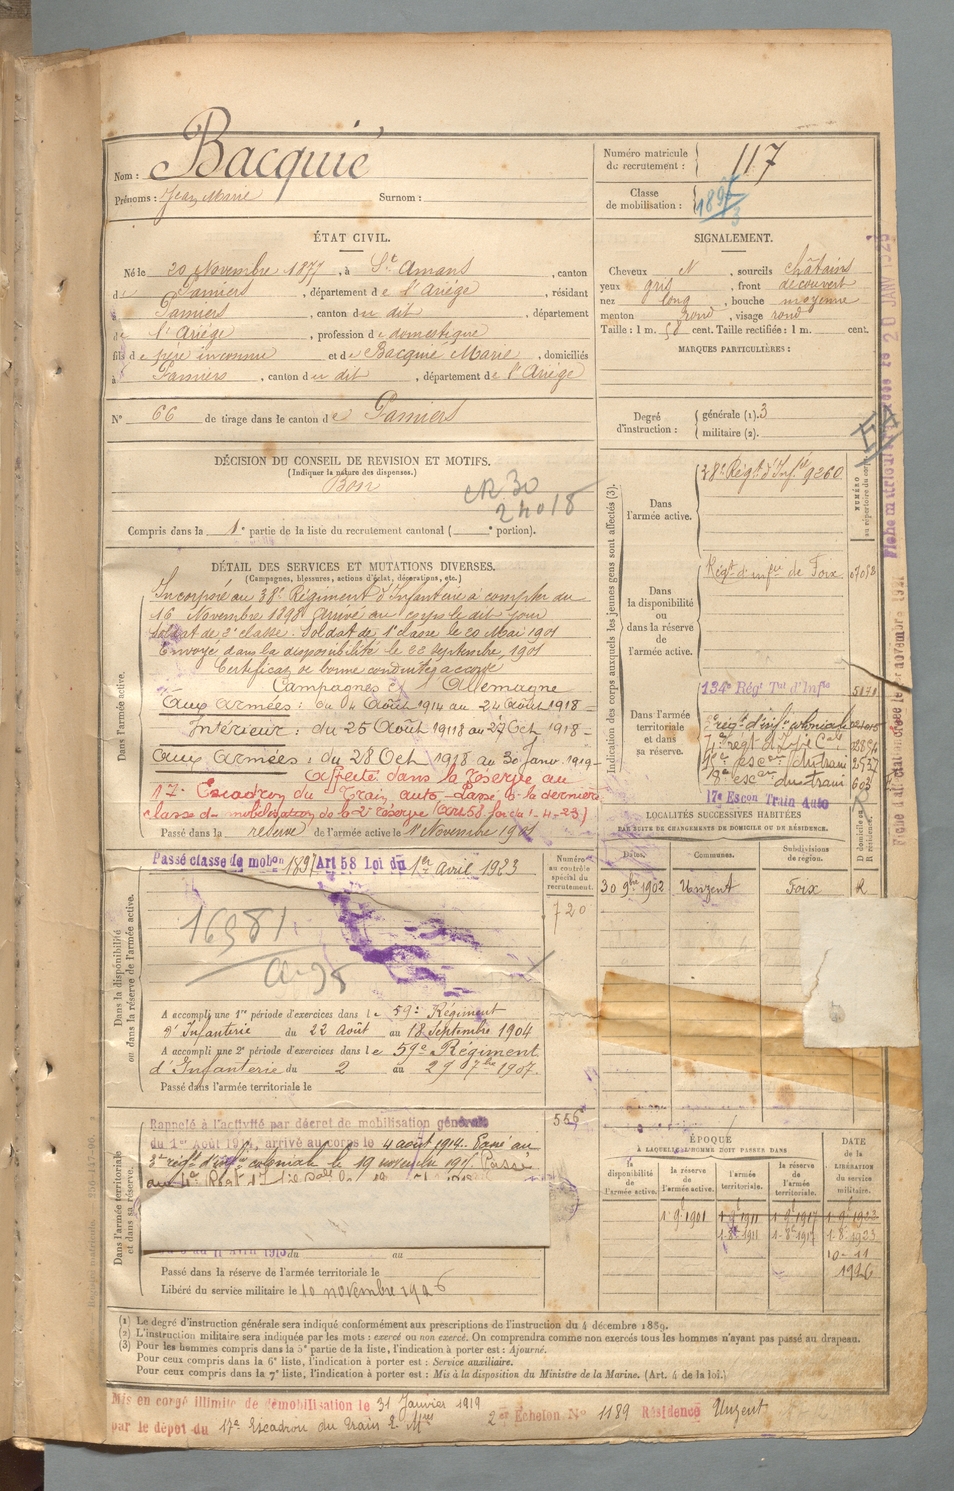 Nom : Bacquié
Prénoms : Jean Marie Surnom :
Numéro matricule
du recrutement : 117
Classe
de mobilisation :
ÉTAT CIVIL.
Né le 20 Novembre 1877, à St Amans, canton
de Pamiers, département de l'Ariège, résidant
à Pamiers, canton du dit, département
de l'Ariège, profession de domestique
fils de père inconnu et de Bacquié Marie, domiciliés
à Pamiers, canton du dit, département de l'Ariège
N° 66 de tirage dans le canton de Pamiers
SIGNALEMENT.
Cheveux N, sourcils châtains
yeux gris, front découvert
nez long, bouche moyenne
menton rond, visage rond
Taille : 1 m. 58 cent. Taille rectifiée : 1 m. cent.
MARQUES PARTICULIÈRES :
Degré
d'instruction :
générale (1). 3
militaire (2).
DÉCISION DU CONSEIL DE REVISION ET MOTIFS.
(Indiquer la nature des dispenses.)
Bon
CR 30
24018
Compris dans la 1e partie de la liste du recrutement cantonal ( e portion).
DÉTAIL DES SERVICES ET MUTATIONS DIVERSES.
(Campagnes, blessures, actions d'éclat, décorations, etc.)
Dans l'armée active.
Incorporé au 38e Régiment d'Infanterie à compter du
16 Novembre 1898 Arrivé au corps le dit jour
soldat de 2e classe. Soldat de 1e classe le 20 Mai 1901
Envoyé dans la disponibilité le 22 septembre 1901
Certificat de bonne conduite accordé
Campagnes Allemagne
Aux armées : du 04 Août 1914 au 24 Août 1918 -
Intérieur : du 25 Août 1918 au 27 Oct 1918 -
Aux armées : du 28 Oct 1918 au 30 Janv. 1919 -
Affecté dans la réserve au
17e Escadron du Train auto - Passé à la dernière
classe de mobilisation de la 2e réserve (art 58 loi du 1-4-23)
Passé dans la réserve de l'armée active le 1er Novembre 1901
Indication des corps auxquels les jeunes gens sont affectés (3).
NUMÉRO
au répertoire du corps
Dans
l'armée active.
38e Régt d'Infie 9260
Dans
la disponibilité
ou
dans la réserve
de
l'armée active.
Régt d'infie de Foix
Dans l'armée
territoriale
et dans
sa réserve.
134e Régt Tal d'Infie
3e régt d'inf coloniale
17e Escon Train Auto
LOCALITÉS SUCCESSIVES HABITÉES
PAR SUITE DE CHANGEMENTS DE DOMICILE OU DE RÉSIDENCE.
D domicile ou
R résidence.
Dates. Communes. Subdivisions
de région.
30 9bre 1902 Unzent Foix R
Dans la disponibilité
ou dans la réserve de l'armée active.
Passé classe de mobon 1897 Art 58 Loi du 1er Avril 1923
Numéro
au contrôle
spécial du
recrutement.
720
16981
A accompli une 1re période d'exercices dans le 59e Régiment
d'Infanterie du 22 Août au 18 Septembre 1904
A accompli une 2e période d'exercices dans le 59e Régiment
d'Infanterie du 2 au 29 7bre 1907.
Passé dans l'armée territoriale le
Dans l'armée territoriale
et dans sa réserve.
Rappelé à l'activité par décret de mobilisation générale
du 1er Août 1914, arrivé au corps le 4 août 1914. Passé au
3e régt d'infie coloniale le 19 novembre Passé
556
Passé dans la réserve de l'armée territoriale le
Libéré du service militaire le 10 novembre 1926
ÉPOQUE
À LAQUELLE L'HOMME DOIT PASSER DANS
DATE
de la
LIBÉRATION
du service
militaire.
la
disponibilité
de
l'armée active.
la réserve
de
l'armée active.
l'armée
territoriale.
la réserve
de
l'armée
territoriale.
10-11
1926
(1) Le degré d'instruction générale sera indiqué conformément aux prescriptions de l'instruction du 4 décembre 1889.
(2) L'instruction militaire sera indiquée par les mots : exercé ou non exercé. On comprendra comme non exercés tous les hommes n'ayant pas passé au drapeau.
(3) Pour les hommes compris dans la 5e partie de la liste, l'indication à porter est : Ajourné.
Pour ceux compris dans la 6e liste, l'indication à porter est : Service auxiliaire.
Pour ceux compris dans la 7e liste, l'indication à porter est : Mis à la disposition du Ministre de la Marine. (Art. 4 de la loi.)
Mis en congé illimité de démobilisation le 31 Janvier 1919
par le dépôt du 17e Escadron du Train 2e Échelon N° 1189 Résidence Unzent